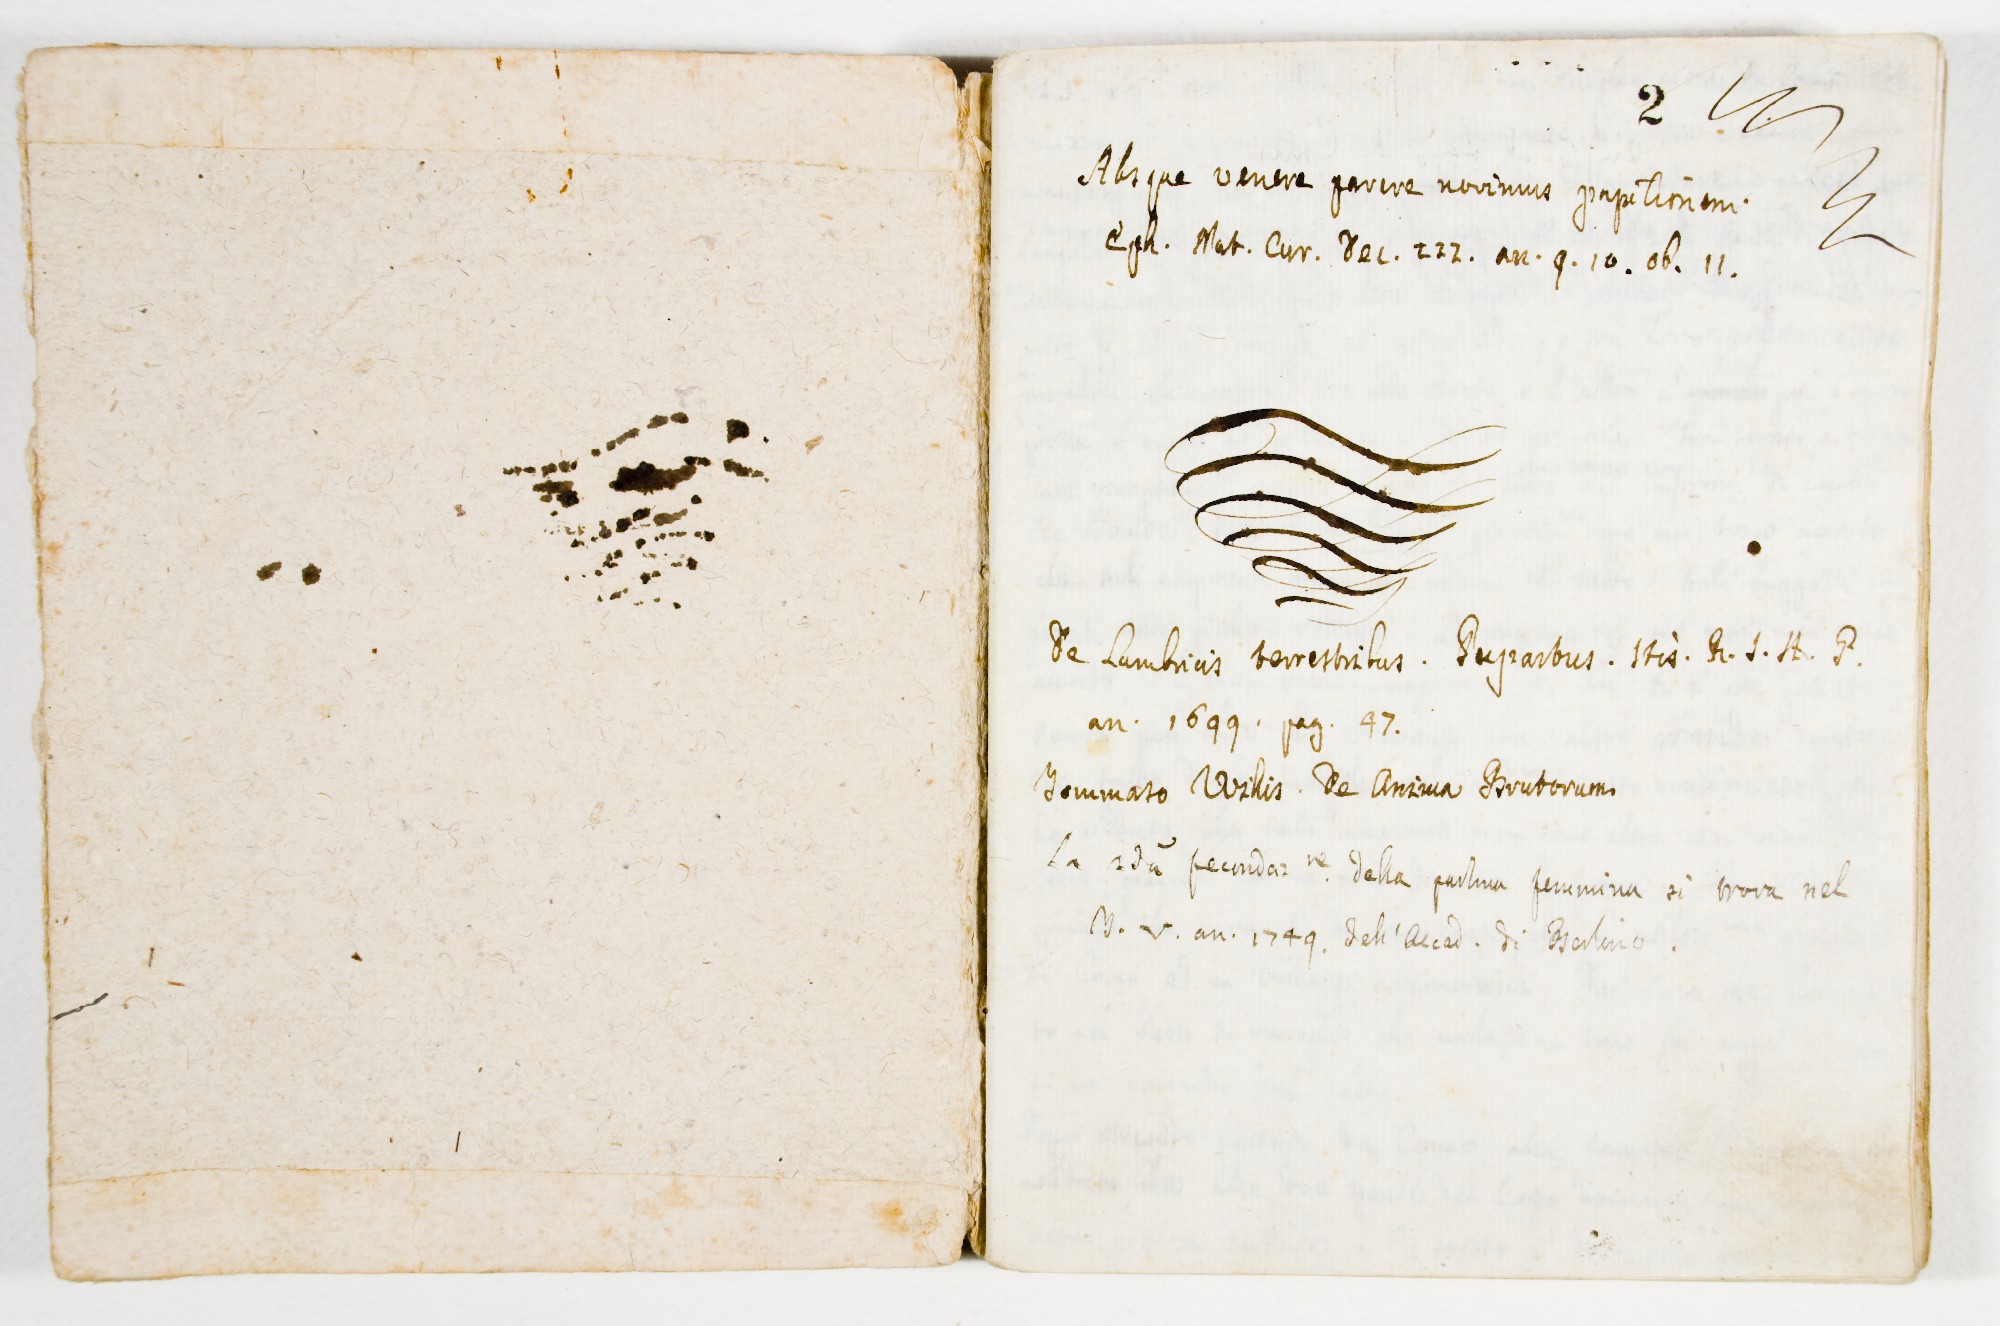 2
Absque venere parere novimus papilionem.
Eph. Nat. Cur. Dec. III. an. 9. 10. ob. 11.
De Lumbricis terrestribus. Duparbus. R. P.
an. 1699. pag. 47.
Tommaso Wilis. De Anima Brutorum.
La 2da fecondaz.ne della palma femmina si trova nel
T. V. an. 1749. dell'Accad. di Berlino.